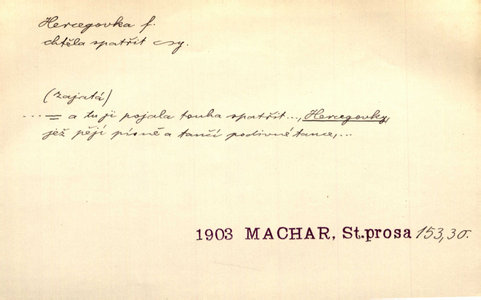 Hercegovka f.
chtěla spatřit sy.
(zajatá)
...= a tu ji pojala touha spatřit..., Hercegovky,
jež pějí písně a tančí podivné tance,...
1903 MACHAR, St.prosa 153,30.